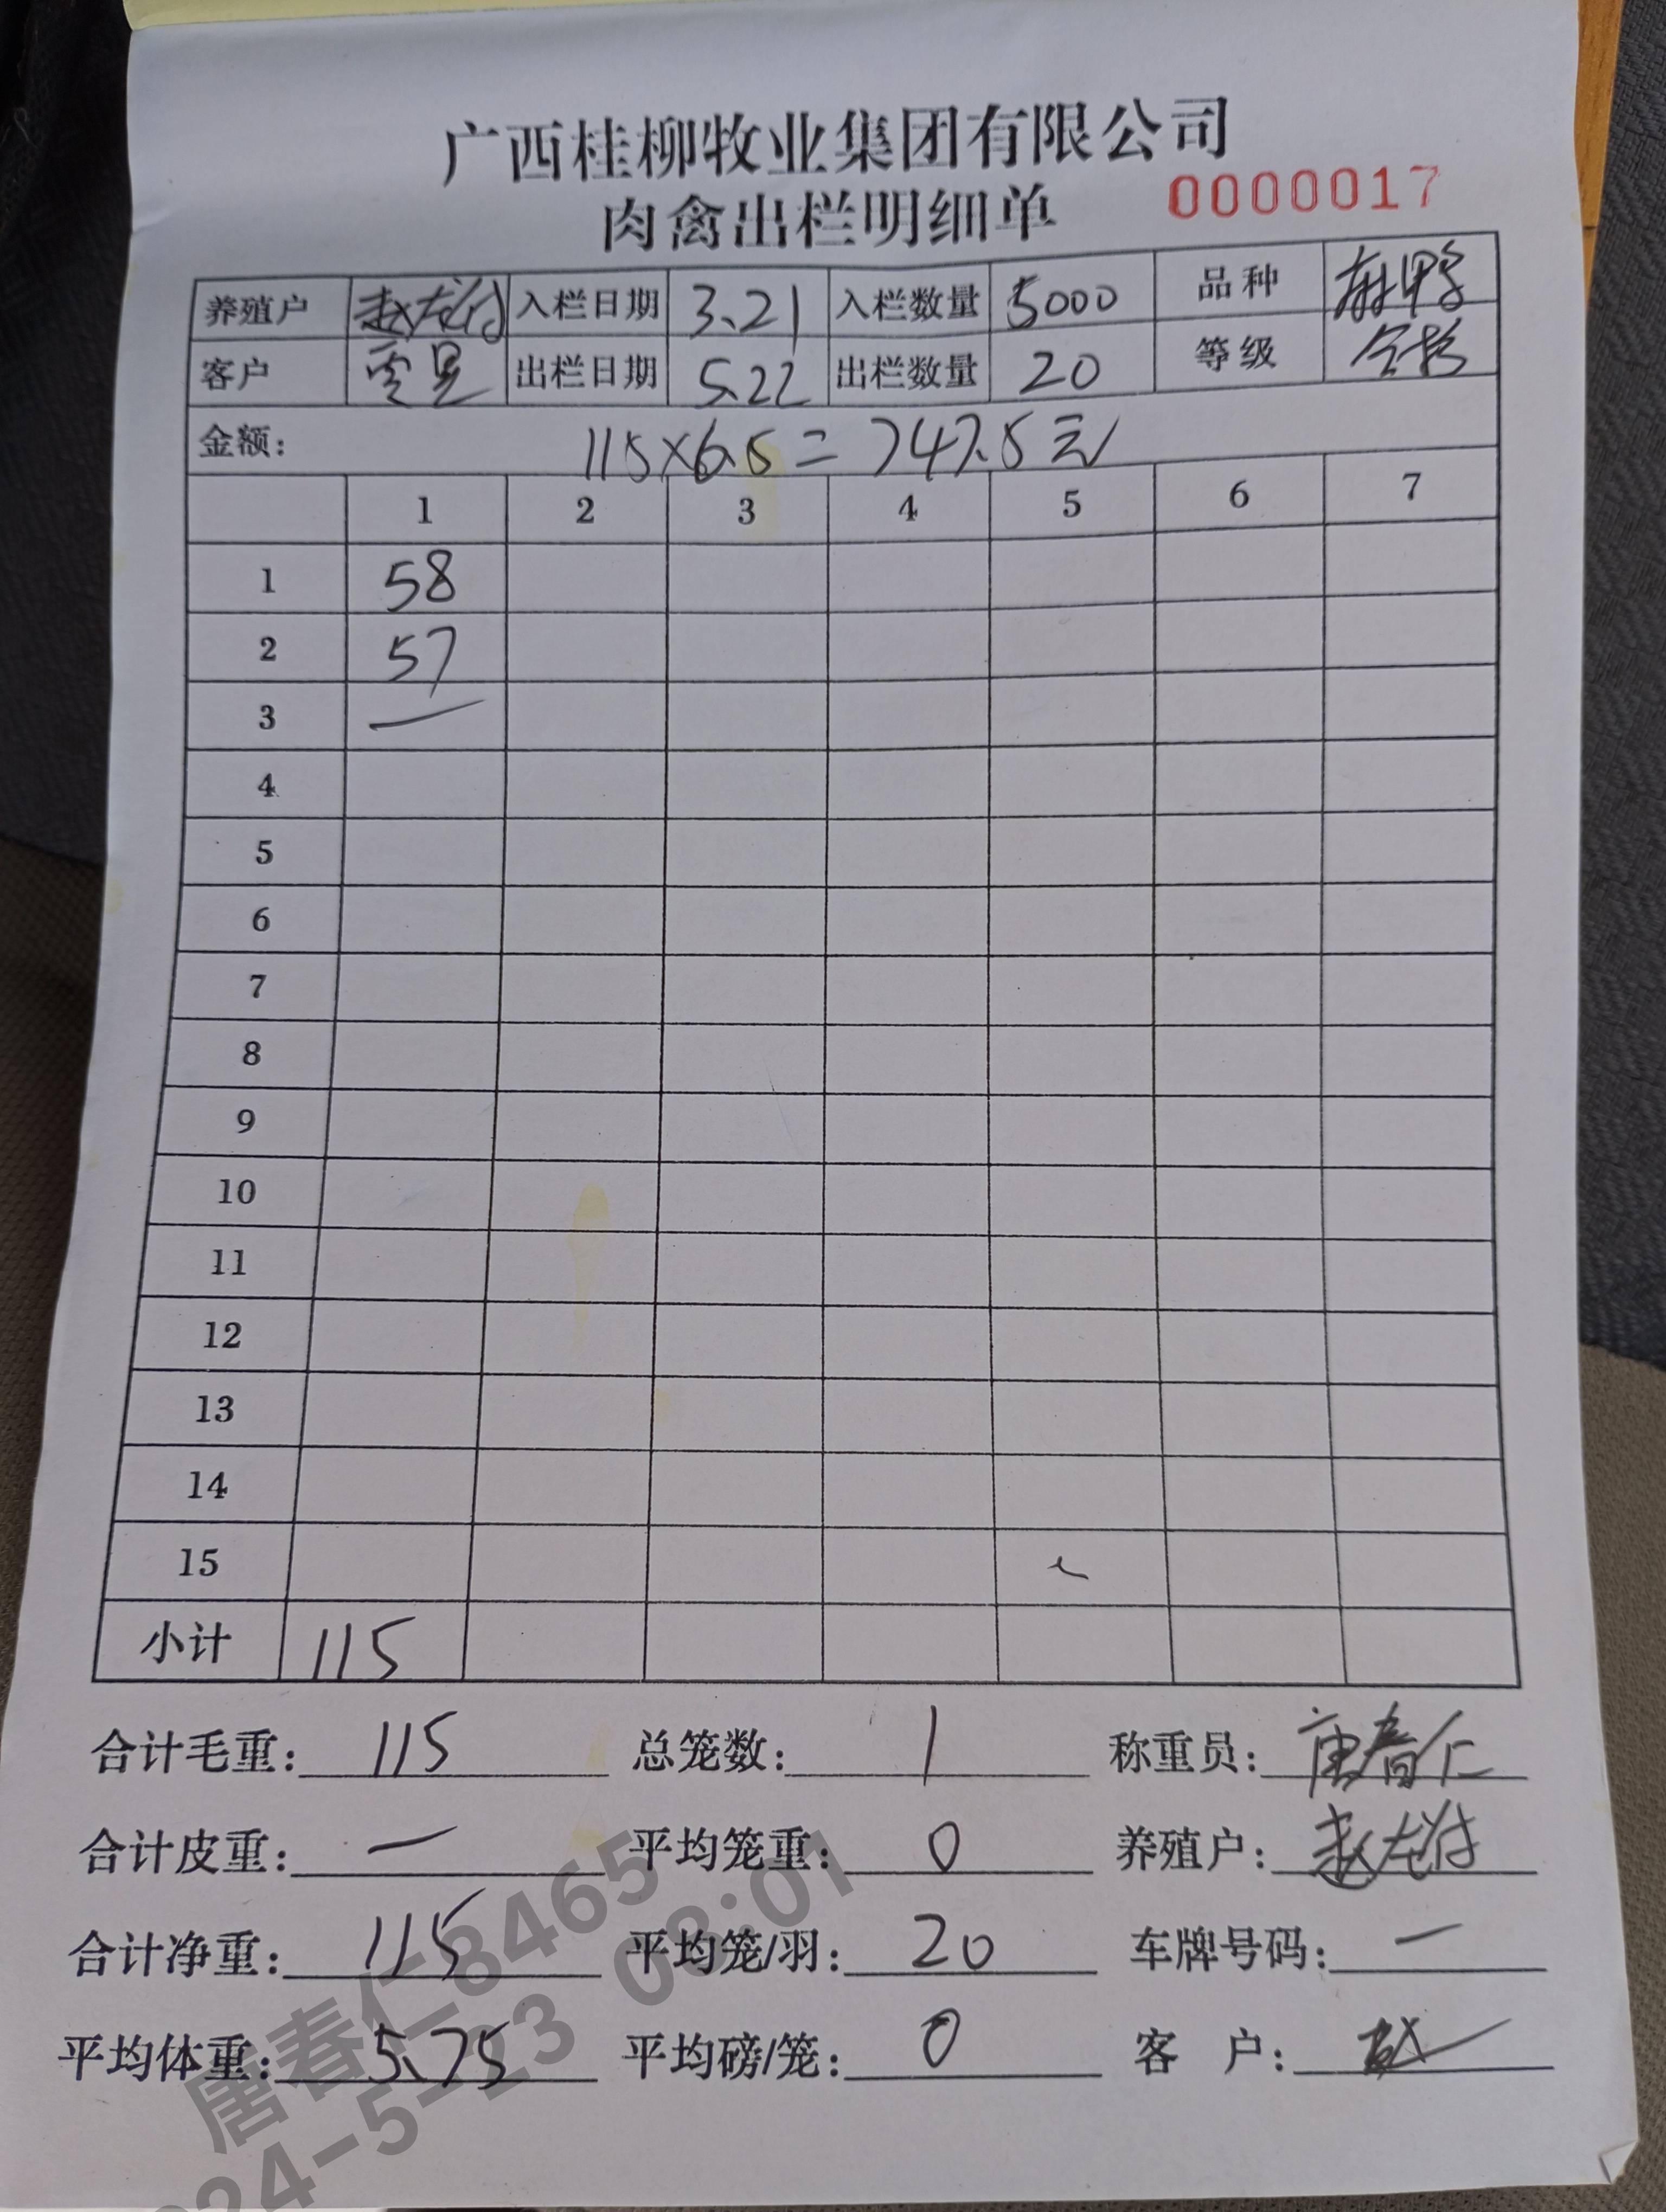 广西桂柳牧业集团有限公司
肉禽出栏明细单 0000017
养殖户 赵龙付 入栏日期 3.21 入栏数量 5000 品种 麻鸭
客户 零星 出栏日期 5.22 出栏数量 20 等级 合格
金额: 115×6.5=747.5元
1 2 3 4 5 6 7
1 58
2 57
3 —
4
5
6
7
8
9
10
11
12
13
14
15
小计 115
合计毛重: 115 总笼数: 1 称重员: 唐春仁
合计皮重: — 平均笼重: 0 养殖户: 赵龙付
合计净重: 115 平均笼/羽: 20 车牌号码: —
平均体重: 5.75 平均磅/笼: 0 客 户: 赵
唐春仁8465
24-5-23 08:01